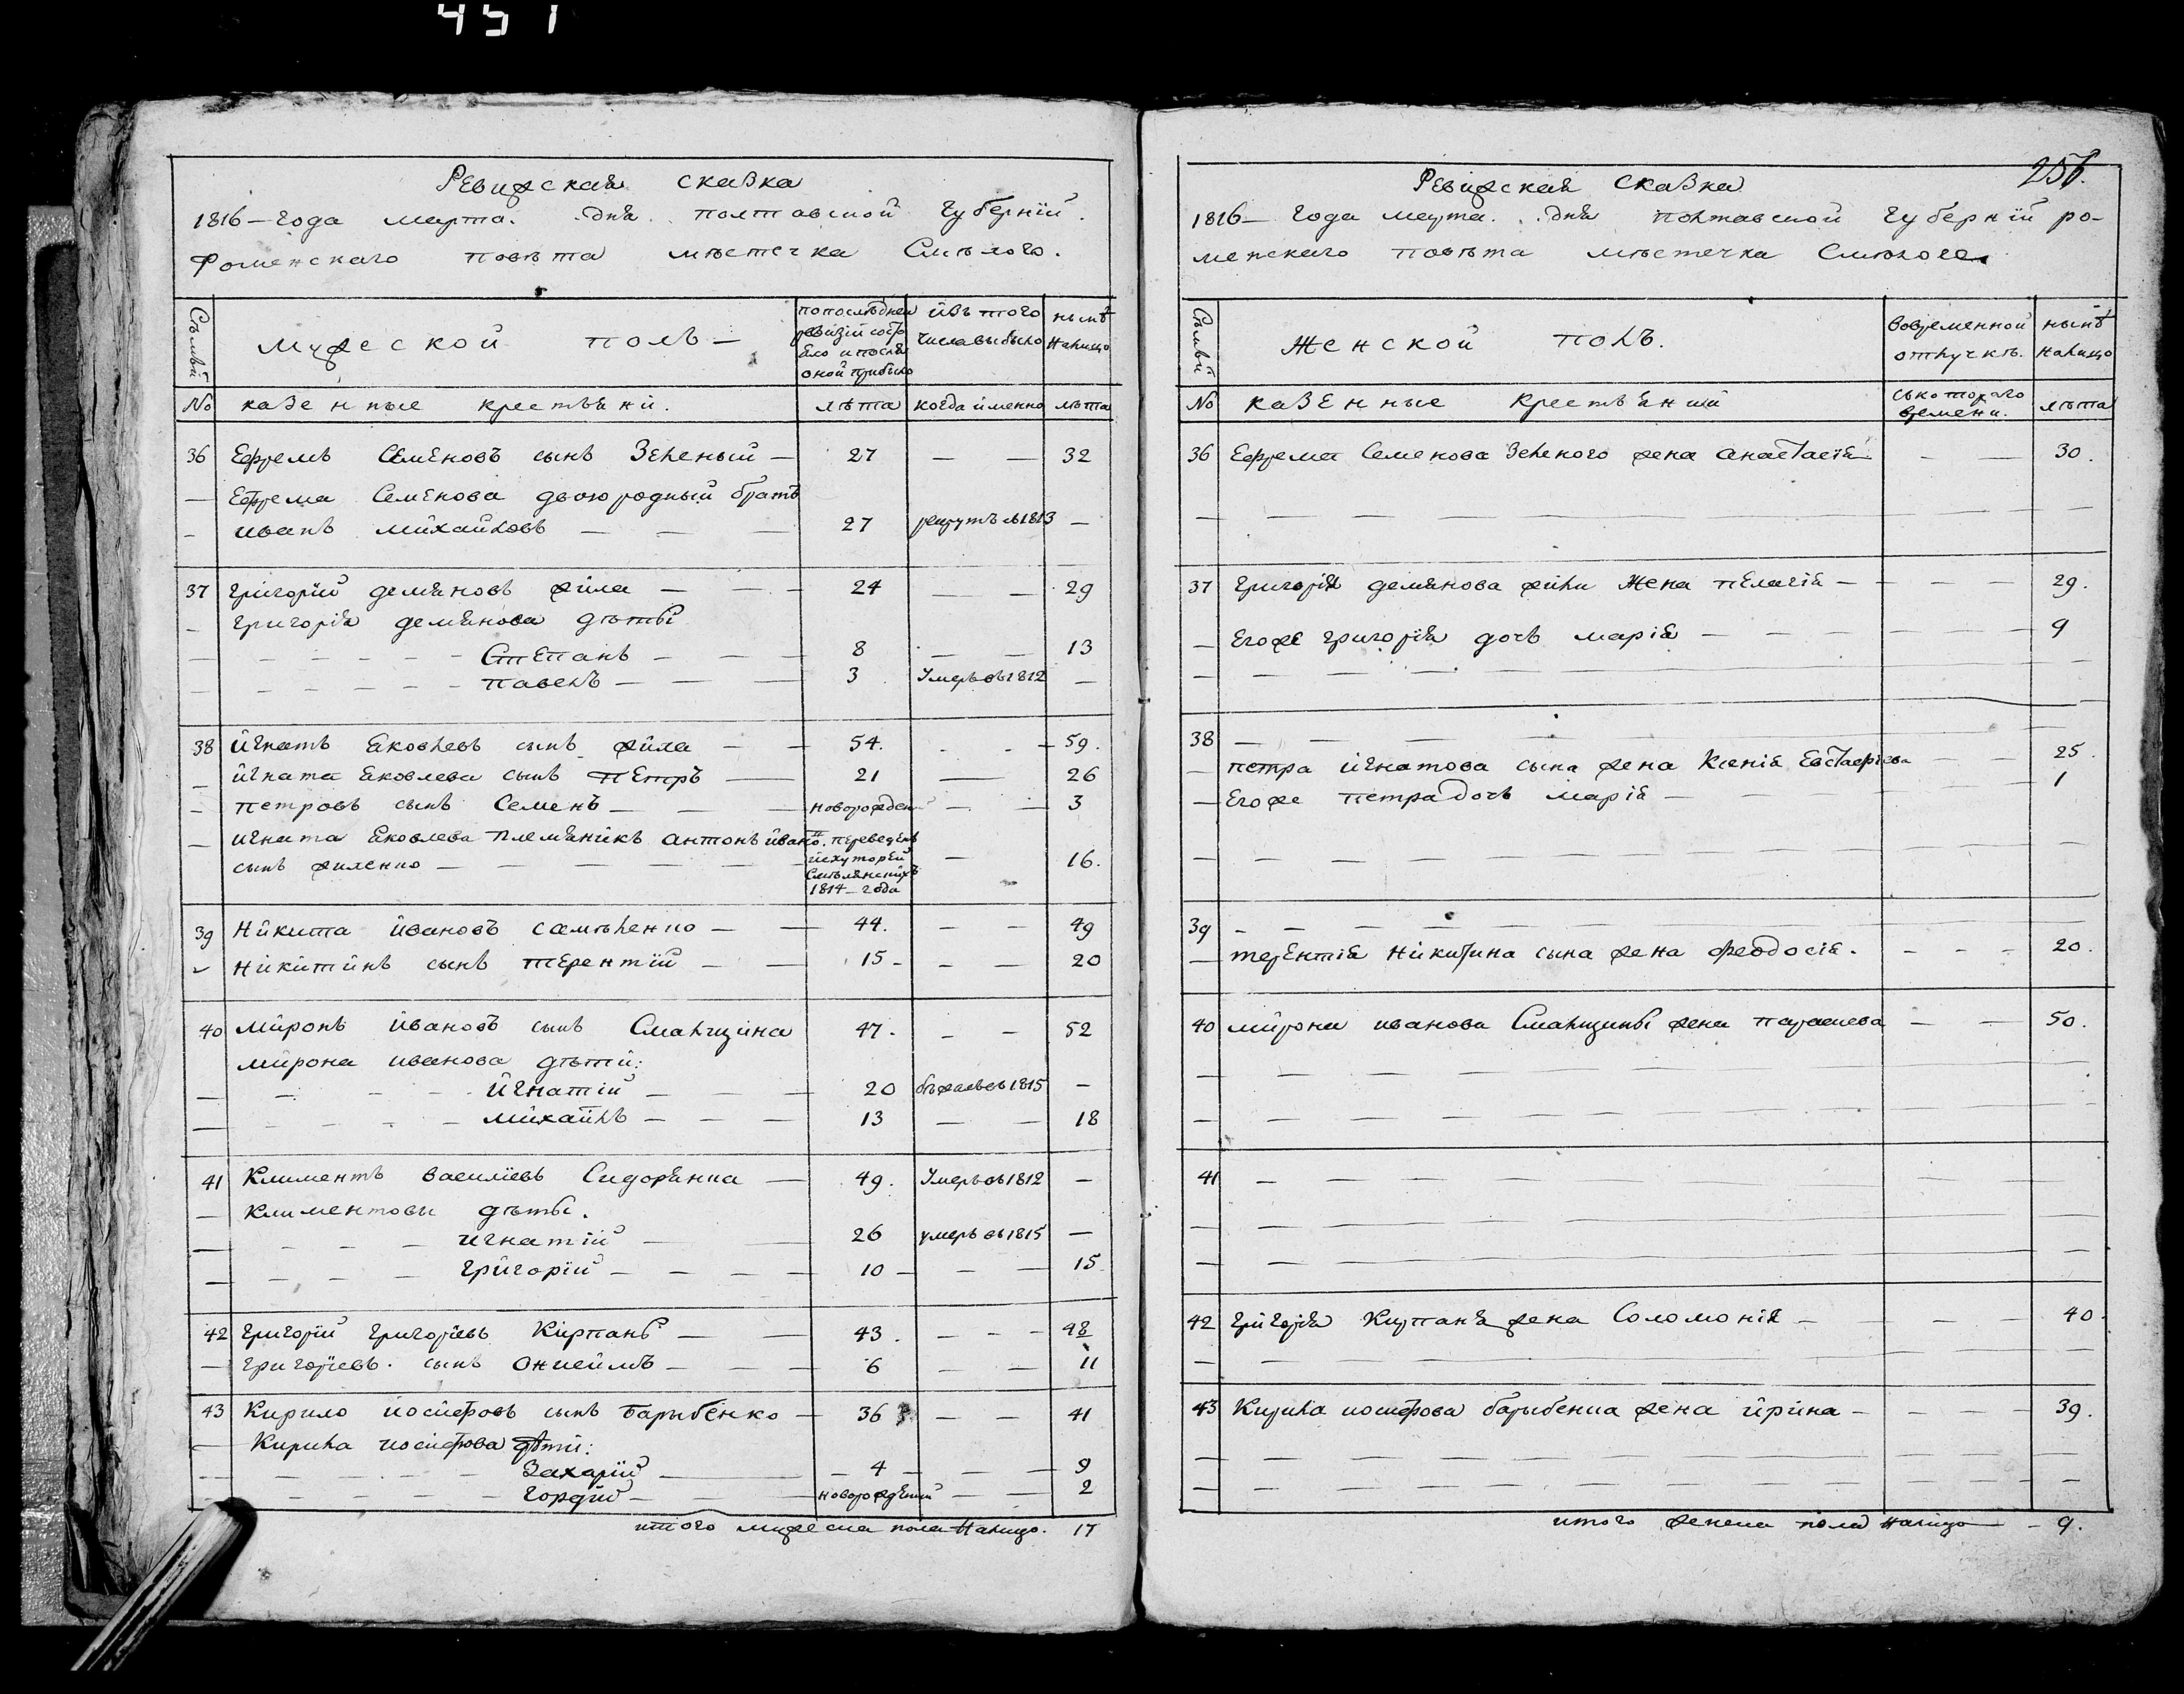 451
Ревижская сказка
1816 – года марта . . дня . полтавской губернїи .
Роменского повѣта мѣстечка Смѣлого .
Сѣмьи
мужеской полъ –
по послѣдней ревизіи состояло и послѣ оной прибыло
изъ того числа выбыло
нынѣ налицо
№ казенные крестьяни .
лѣта
когда именно
лѣта
36 Ефремъ Семеновъ сынъ Зеленый – 27 — — 32
— Ефрема Семенова двоюродный братъ
– иванъ михайловъ — — — 27 рекрутъ въ 1813 —
37 григорїй демяновъ жила — — – 24 — — 29
– григорія демянова дѣты
— – – – – – Степанъ – — — 8 – — 13
— – – – – – павелъ — — — 3 Умеръ въ 1812 —
38 игнатъ яковлевъ сынъ жила — — 54. - - – 59.
– игната яковлева сынъ петръ —— 21 —— 26
– петровъ сынъ Семенъ — — — новорожден — — 3
– игната яковлева племяникъ антонъ ивано.
сынъ жиленко — — — — —
переведенъ
изхуторей
Смѣлянскихъ
1814 – года
— 16.
39 Никита ивановъ самѣленко — — 44. — — 49
никитинъ сынъ терентїй — — 15 – — — 20
40 миронъ ивановъ сынъ Смалщина 47. – — 52
мирона иванова дѣти:
— – – – игнатїй — — — 20 бѣжалъ въ 1815 —
— – – – – михаилъ — — — 13 — — 18
41 Климентъ василїевъ Сидорянка — 49. Умеръ въ 1812 —
— климентовы дѣты .
— – – — игнатїй — — 26 умеръ въ 1815 —
— – – – – григорїй — — — — 10 – — — 15
42 григорїй григорїевъ Кирпань — — 43. – – – 48
— григорїевъ . сынъ онисимъ — — — 6 — — 11
43 Кирило иосифовъ сынъ Барыбенко – 36 — — 41
— Кирила иосифова дѣти:
— – – – – – Захарїй —— — – 4 – — — 9
— – – – – – гордїй — — новорожденый — — 2
итого мужеска пола налицо . 17
256.
Ревижская Сказка
1816 – года марта . . дня полтавской губернїи ро-
менского повѣта мѣстечка Смѣлого
Сѣмьи
Женской полъ .
во временной отлучкѣ .
нынѣ налицо
№ казенные крестьяний
съ которого времени .
лѣта
36 Ефрема Семенова Зеленого жена анастасїя — – — 30.
37 григорїя демянова жили жена пелагія – – — — 29.
— Егоже григорїя дочь марія — — — — 9
38 — — — — —
— петра игнатова сына жена Ксенія Евстафїева — — 25.
— Егоже петра дочь марія — — — — 1
39 – — — — —
— терентїя никитина сына жена феодосія . – – – 20.
40 мирона иванова Смалщины жена параскева — — 50.
41 — — — —
42 григорїя Кирпаня жена Соломонїя – — — — 40.
43 Кирила иосифова барыбенка жена ирина – — — — 39.
итого женска пола налицо — – 9.